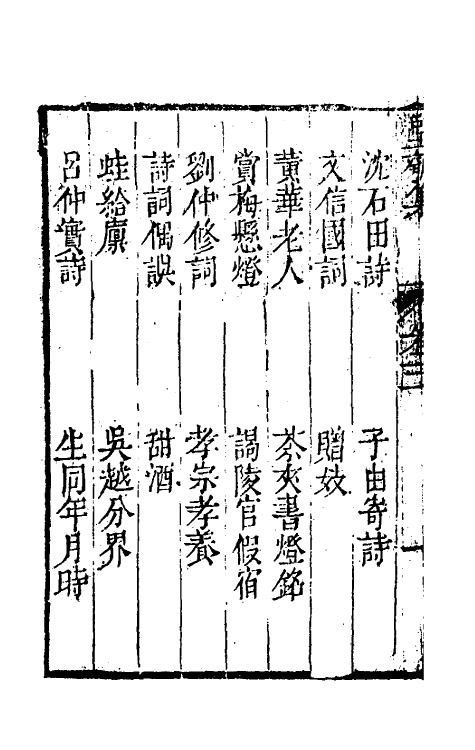 沈石田詩　子由寄詩
文信國詞　贈妓
黃華老人　茶夾書燈銘
賞梅懸燈　謁陵官假宿
劉仲修詞　孝宗孝養
詩詞偶誤　甜酒
蛙給廪　吳越分界
呂仲實詩　生同年月時